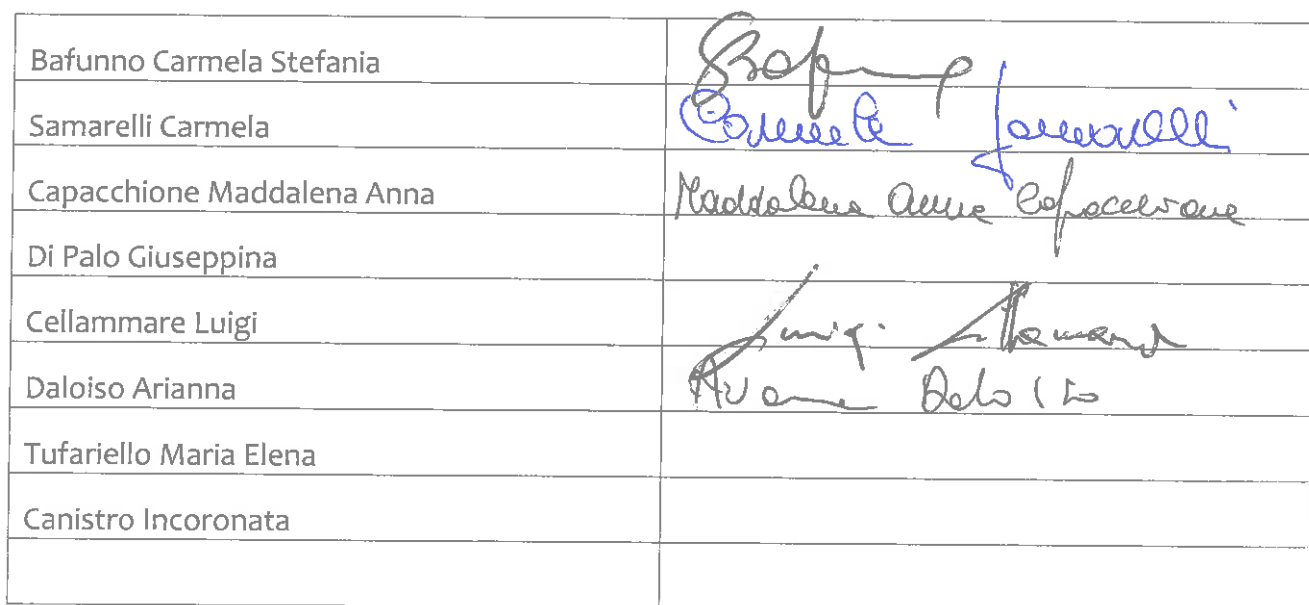 Bafunno Carmela Stefania
Samarelli Carmela Carmela Samarelli
Capacchione Maddalena Anna Maddalena Anna Capacchione
Di Palo Giuseppina
Cellammare Luigi Luigi
Daloiso Arianna Arianna Daloiso
Tufariello Maria Elena
Canistro Incoronata